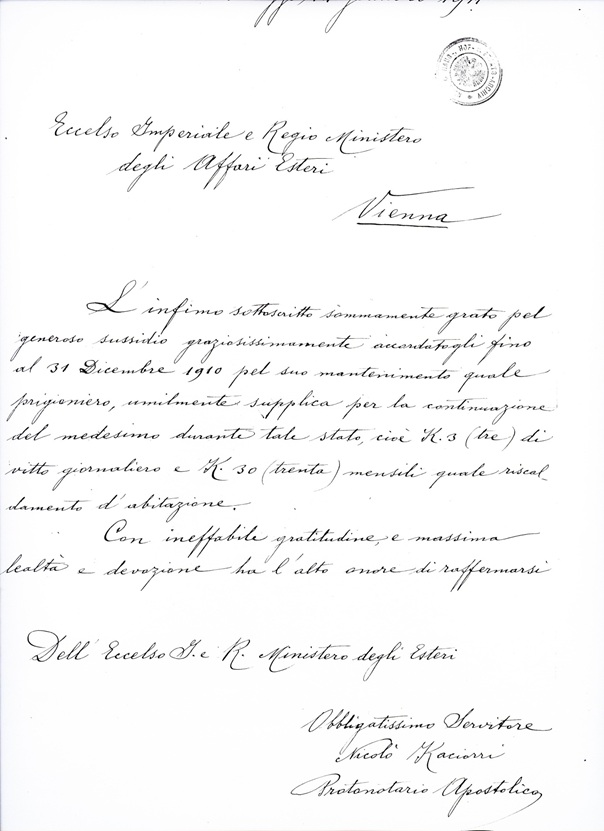 1911
HAUS-, HOF- U. STAATS-ARCHIV
Eccelso Imperiale e Regio Ministero
degli Affari Esteri
Vienna
L'infimo sottoscritto sommamente grato pel
generoso sussidio graziosissimamente accordatogli fino
al 31 Dicembre 1910 pel suo mantenimento quale
prigioniero, umilmente supplica per la continuazione
del medesimo durante tale stato, cioè K. 3 (tre) di
vitto giornaliero e K. 30 (trenta) mensili quale riscal-
damento d'abitazione.
Con ineffabile gratitudine, e massima
lealtà e devozione ha l'alto onore di raffermarsi
Dell' Eccelso I. e R. Ministero degli Esteri
Obbligatissimo Servitore
Nicolò Kaciorri
Protonotario Apostolico